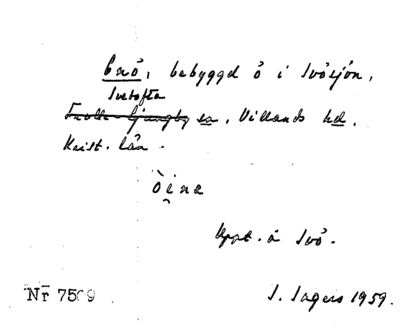 Enö, bebyggd ö i Ivösjön,
Ivetofta
Trolle-Ljungby sn, Villands hd.
Krist. län.
Uppt. å Ivö.
Nr 7509 S. Ingers 1959.